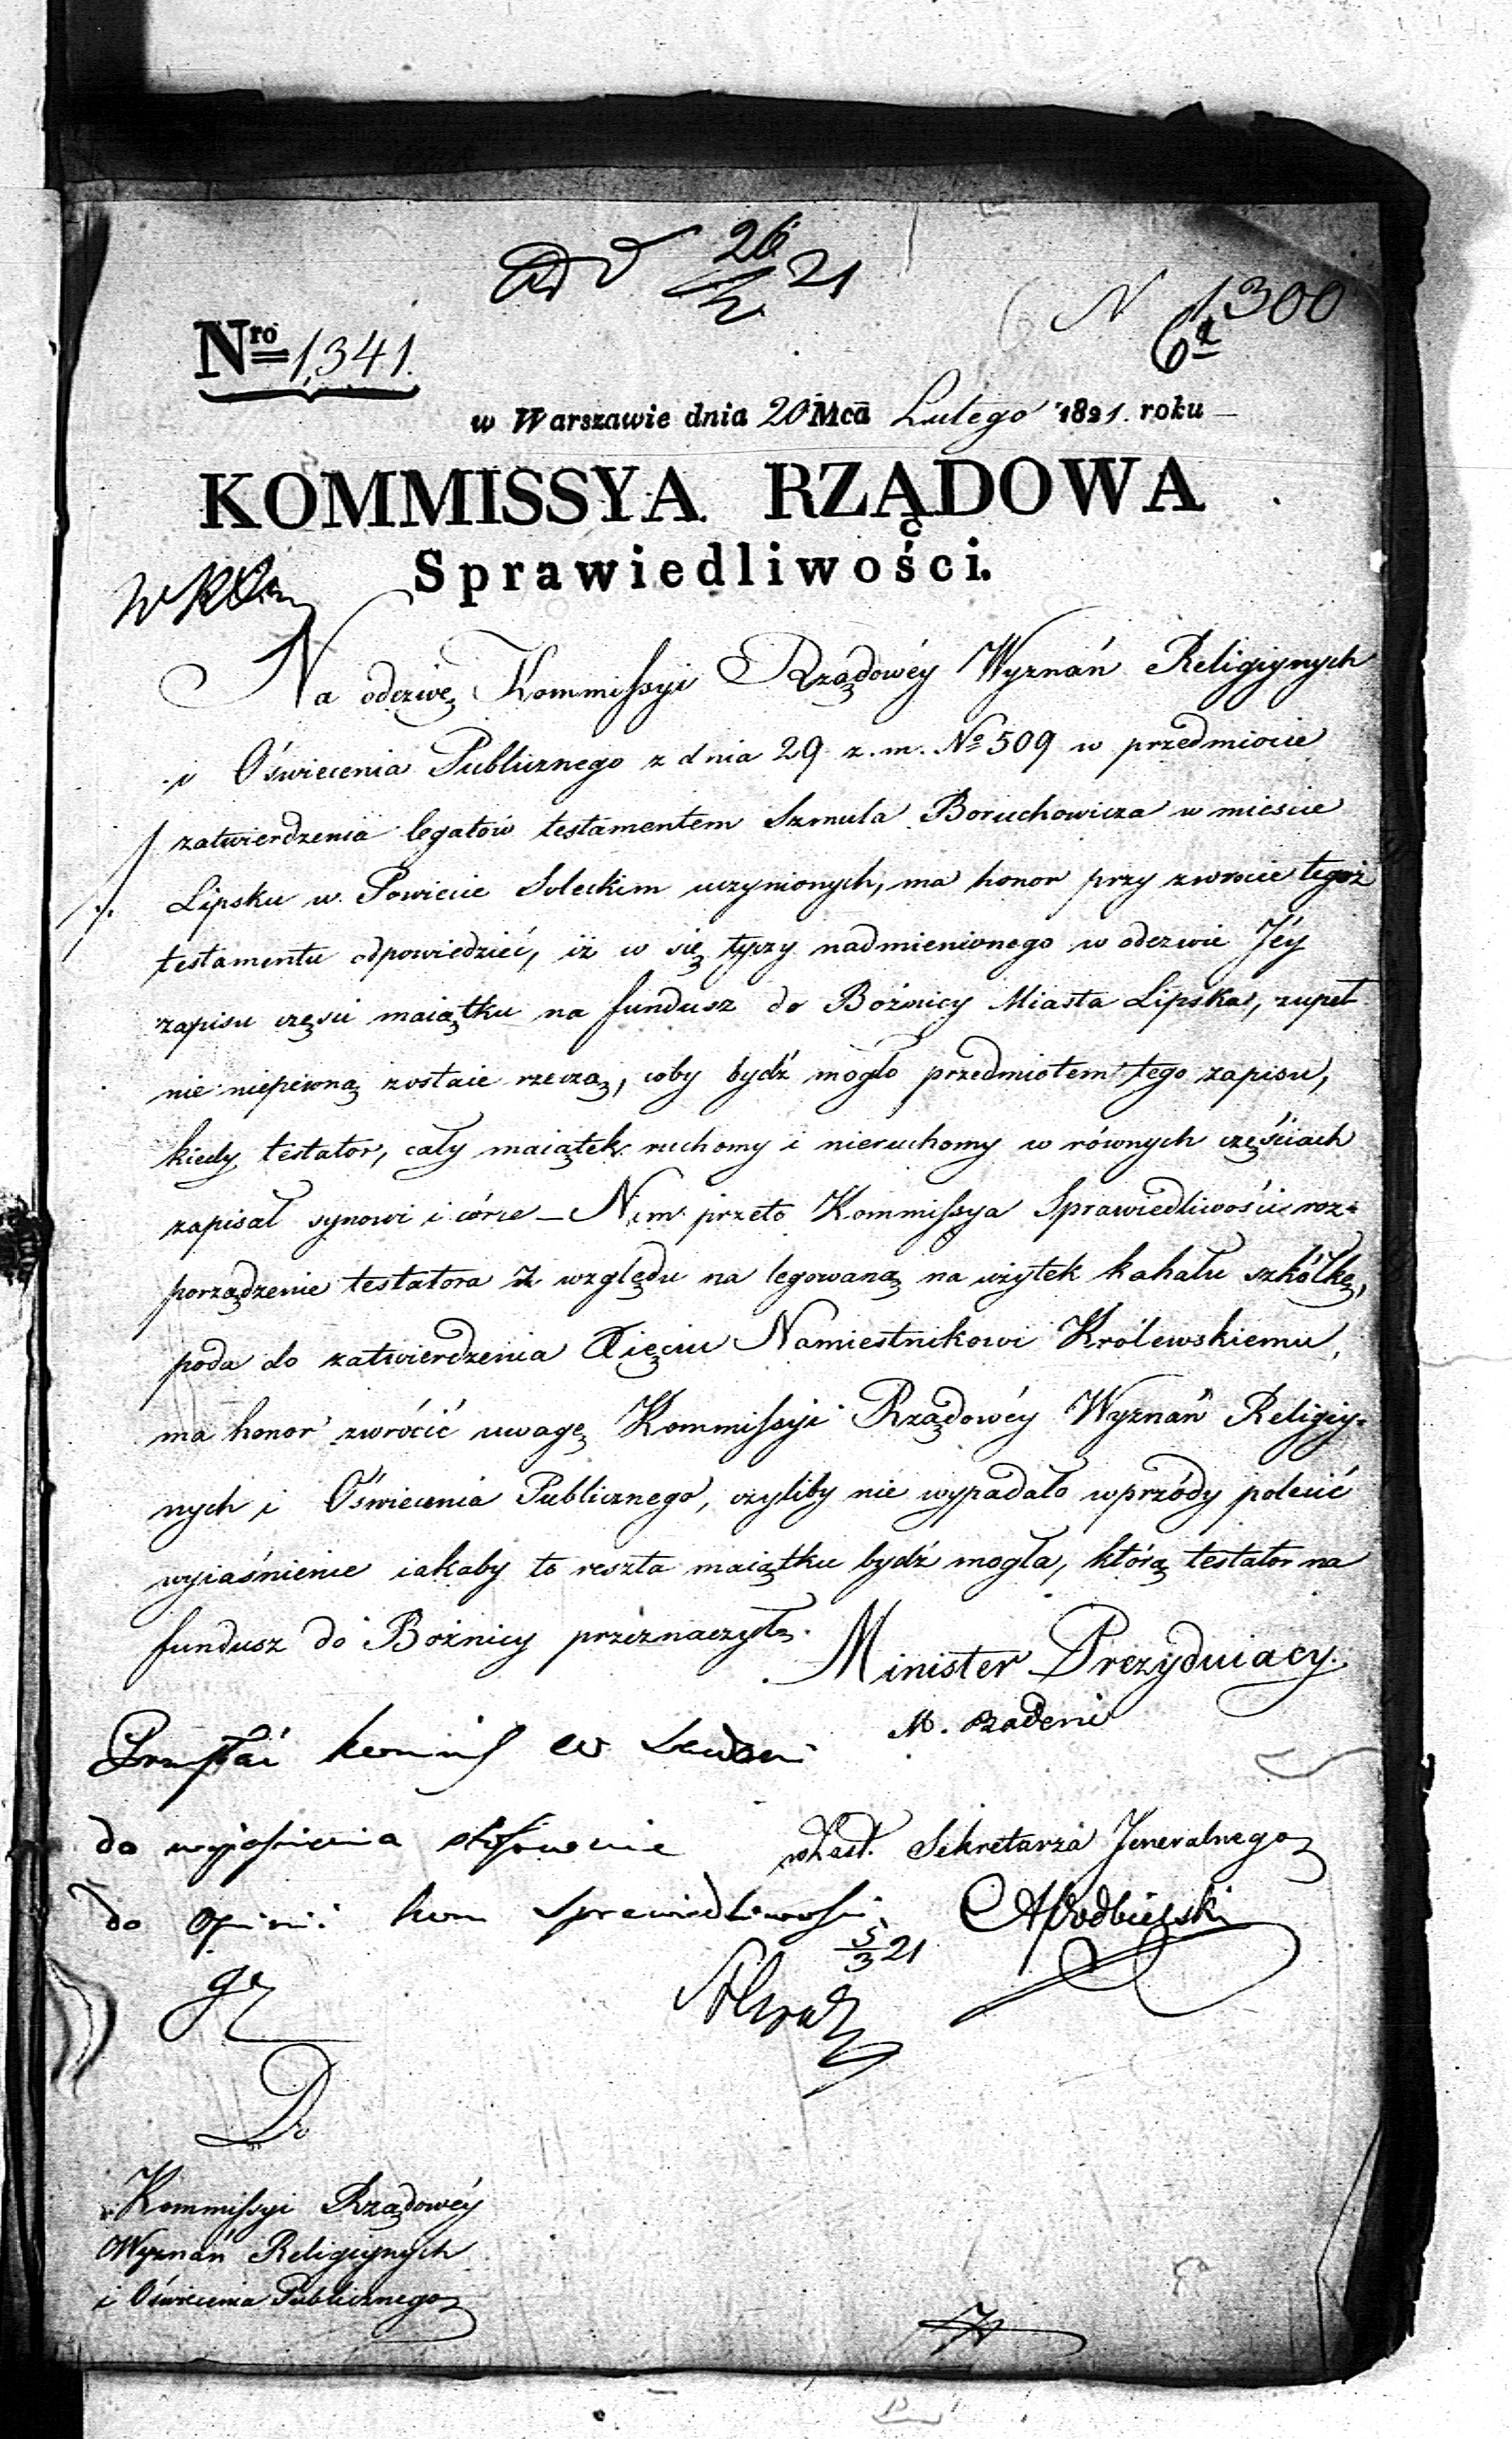 26 21
N 1300
6
Nro 1,341.
w Warszawie dnia 20 Mca Lutego 1821. roku
KOMMISSYA RZĄDOWA
Sprawiedliwości.
Na odezwę Kommissyi Rządowéy Wyznań Religiynych
i Oświecenia Publicznego z dnia 29 z. m. No 509 w przedmiocie
zatwierdzenia legatów testamentem Szmula Boruchowicza w miescie
Lipsku w Powiecie Soleckim uczynionych, ma honor przy zwrocie tegoż
testamentu odpowiedzieć, iż co się tyczy nadmienionego w odezwie Jéy
zapisu części maiątku na fundusz do Bożnicy Miasta Lipska, zupeł
nie niepewną zostaie rzeczą, coby bydź mogło przedmiotem tego zapisu,
kiedy testator, cały maiątek ruchomy i nieruchomy w równych częściach
zapisał synowi i córce — Nim przeto Kommissya Sprawiedliwości roz=
porządzenie testatora z względu na legowaną na użytek kahału szkółkę,
poda do zatwierdzenia Xięciu Namiestnikowi Królewskiemu,
ma honor zwrócić uwagę Kommissyi Rządowéy Wyznań Religiy=
nych i Oświecenia Publicznego, czyliby nie wypadało wprzódy polecić
wyiaśnienie iakaby to reszta maiątku bydź mogła, którą testator na
fundusz do Bożnicy przeznaczył.
Minister Prezyduiacy.
M. Badeni
do wyjaśnienia stosownie
w Zast. Sekretarza Jeneralnego
do opinii kom Sprawiedliwości
Podbielski
5/3 21
Do
Kommissyi Rządowéy
Wyznań Religiynych
i Oświecenia Publicznego